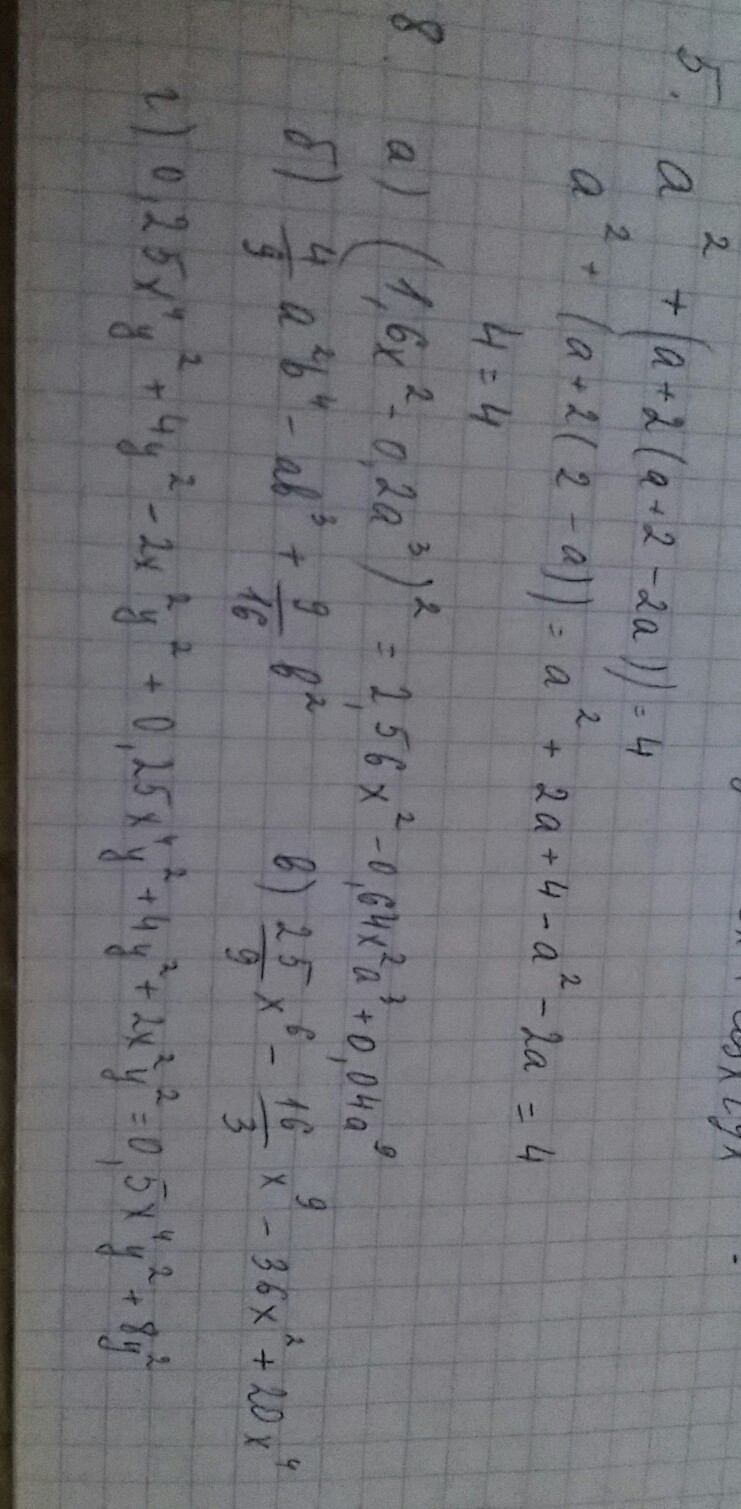 5. a² + (a+2(a+2-2a)) = 4
a² + (a+2(2-a)) = a² + 2a + 4 - a² - 2a = 4
4 = 4
8. а) (1,6x² - 0,2a³)² = 2,56x² - 0,64x²a³ + 0,04a⁹
б) 4/9 a²b⁴ - ab³ + 9/16 b² в) 25/9 x⁶ - 16/3 x⁹ - 36x² + 20x⁴
г) 0,25x⁴y² + 4y² - 2x²y² + 0,25x⁴y² + 4y² + 2x²y² = 0,5x⁴y² + 8y²